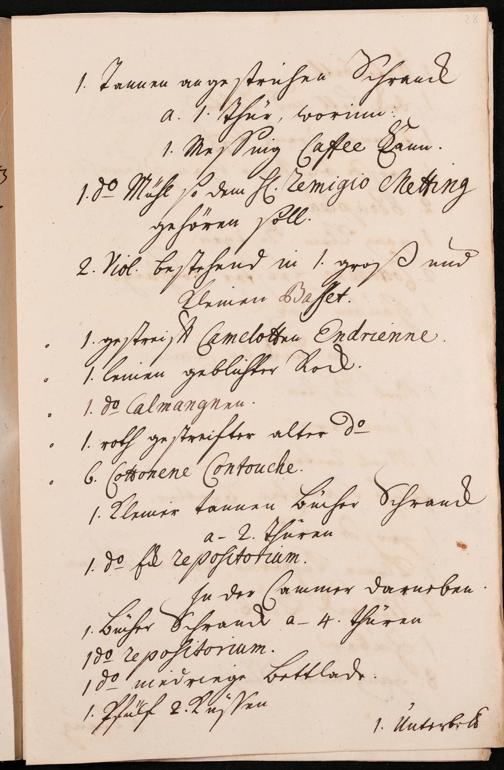 28
1. Tannen angestrichen Schranck
a. 1. Thür, worinn:
1. Messing Caffee Kann.
1. do Mühl so dem H. Remigio Metting
gehören soll.
2. Viol. bestehend in 1. groß und
kleinen Basset.
1. gestreifft Camelotten Endrienne.
1. leinen geblühter Rock.
1. do Calmangnen.
1. roth gestreifter alter do
6. Cottonene Contouche.
1. kleiner tannen Bücher Schranck
a - 2. Thüren
1. do repositorium.
In der Cammer darneben.
1. Bücher Schranck a - 4. thüren
1 do repositorium.
1 do niedriege Bettlade.
1. Pfülf 2. Küssen
1. Unterbett